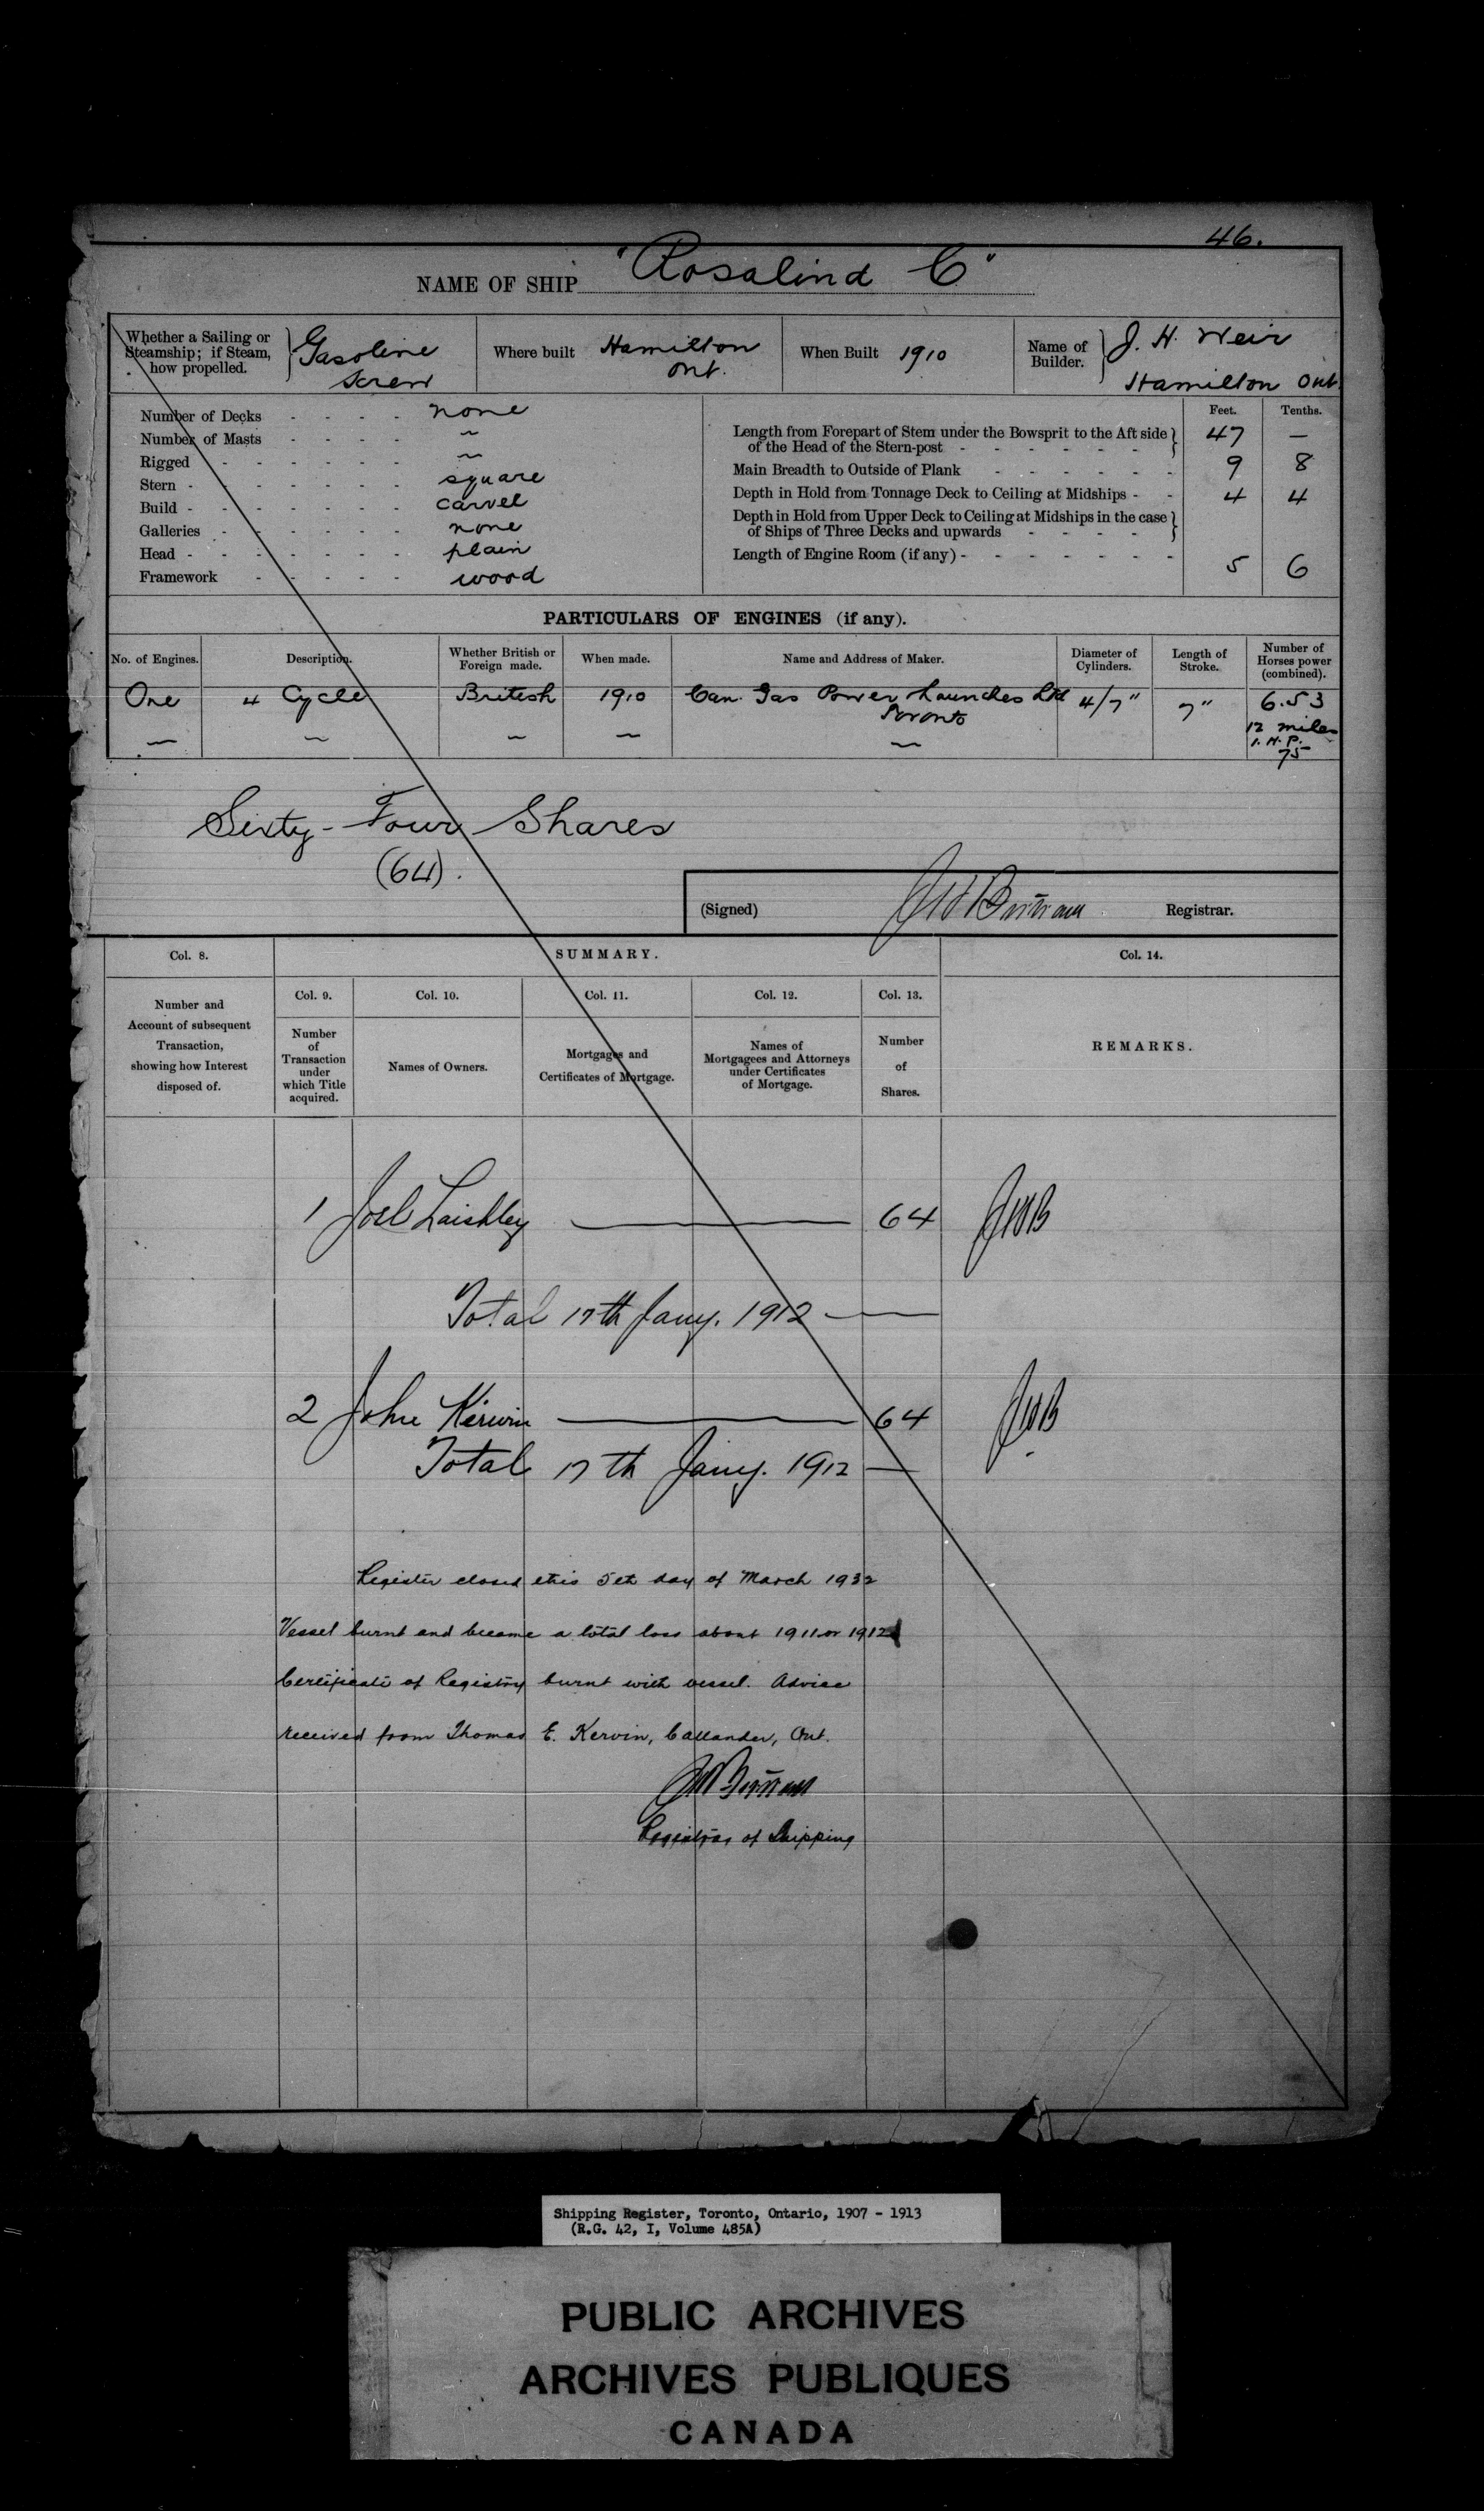 46.
NAME OF SHIP "Rosalind C"
Whether a Sailing or Steamship; if Steam, how propelled. Gasoline Screw
Where built Hamilton Ont.
When Built 1910
Name of Builder. J. H. Weir Hamilton Ont
Number of Decks - - - - none
Number of Masts - - - - ~
Rigged - - - - - - ~
Stern - - - - - - - square
Build - - - - - - - carvel
Galleries - - - - - - none
Head - - - - - - - plain
Framework - - - - - wood
Feet. Tenths.
Length from Forepart of Stem under the Bowsprit to the Aft side of the Head of the Stern-post - - - - - - 47 —
Main Breadth to Outside of Plank - - - - - - 9 8
Depth in Hold from Tonnage Deck to Ceiling at Midships - - 4 4
Depth in Hold from Upper Deck to Ceiling at Midships in the case of Ships of Three Decks and upwards - - - -
Length of Engine Room (if any) - - - - - - - 5 6
PARTICULARS OF ENGINES (if any).
No. of Engines. Description. Whether British or Foreign made. When made. Name and Address of Maker. Diameter of Cylinders. Length of Stroke. Number of Horses power (combined).
One 4 Cycle British 1910 Can. Gas Power Launches Ltd 4/7" 7" 6.53
Toronto
12 miles
— ~ ~ ~ ~ I. H. P.
75
Sixty-Four Shares
(64).
(Signed) Registrar.
Col. 8. SUMMARY. Col. 14.
Col. 9. Col. 10. Col. 11. Col. 12. Col. 13.
Number and Account of subsequent Transaction, showing how Interest disposed of.
Number of Transaction under which Title acquired.
Names of Owners.
Mortgages and Certificates of Mortgage.
Names of Mortgagees and Attorneys under Certificates of Mortgage.
Number of Shares.
REMARKS.
1 Joel Laishley — 64 JWB
Total 17th Jany. 1912 —
2 John Kirwin — 64 JWB
Total 17th Jany. 1912 —
Register closed this 5th day of March 1932
Vessel burnt and became a total loss about 1911 or 1912
Certificate of Registry burnt with vessel. Advice
received from Thomas E. Kervin, Callander, Ont.
Registrar of Shipping
Shipping Register, Toronto, Ontario, 1907 - 1913
(R.G. 42, I, Volume 485A)
PUBLIC ARCHIVES
ARCHIVES PUBLIQUES
CANADA